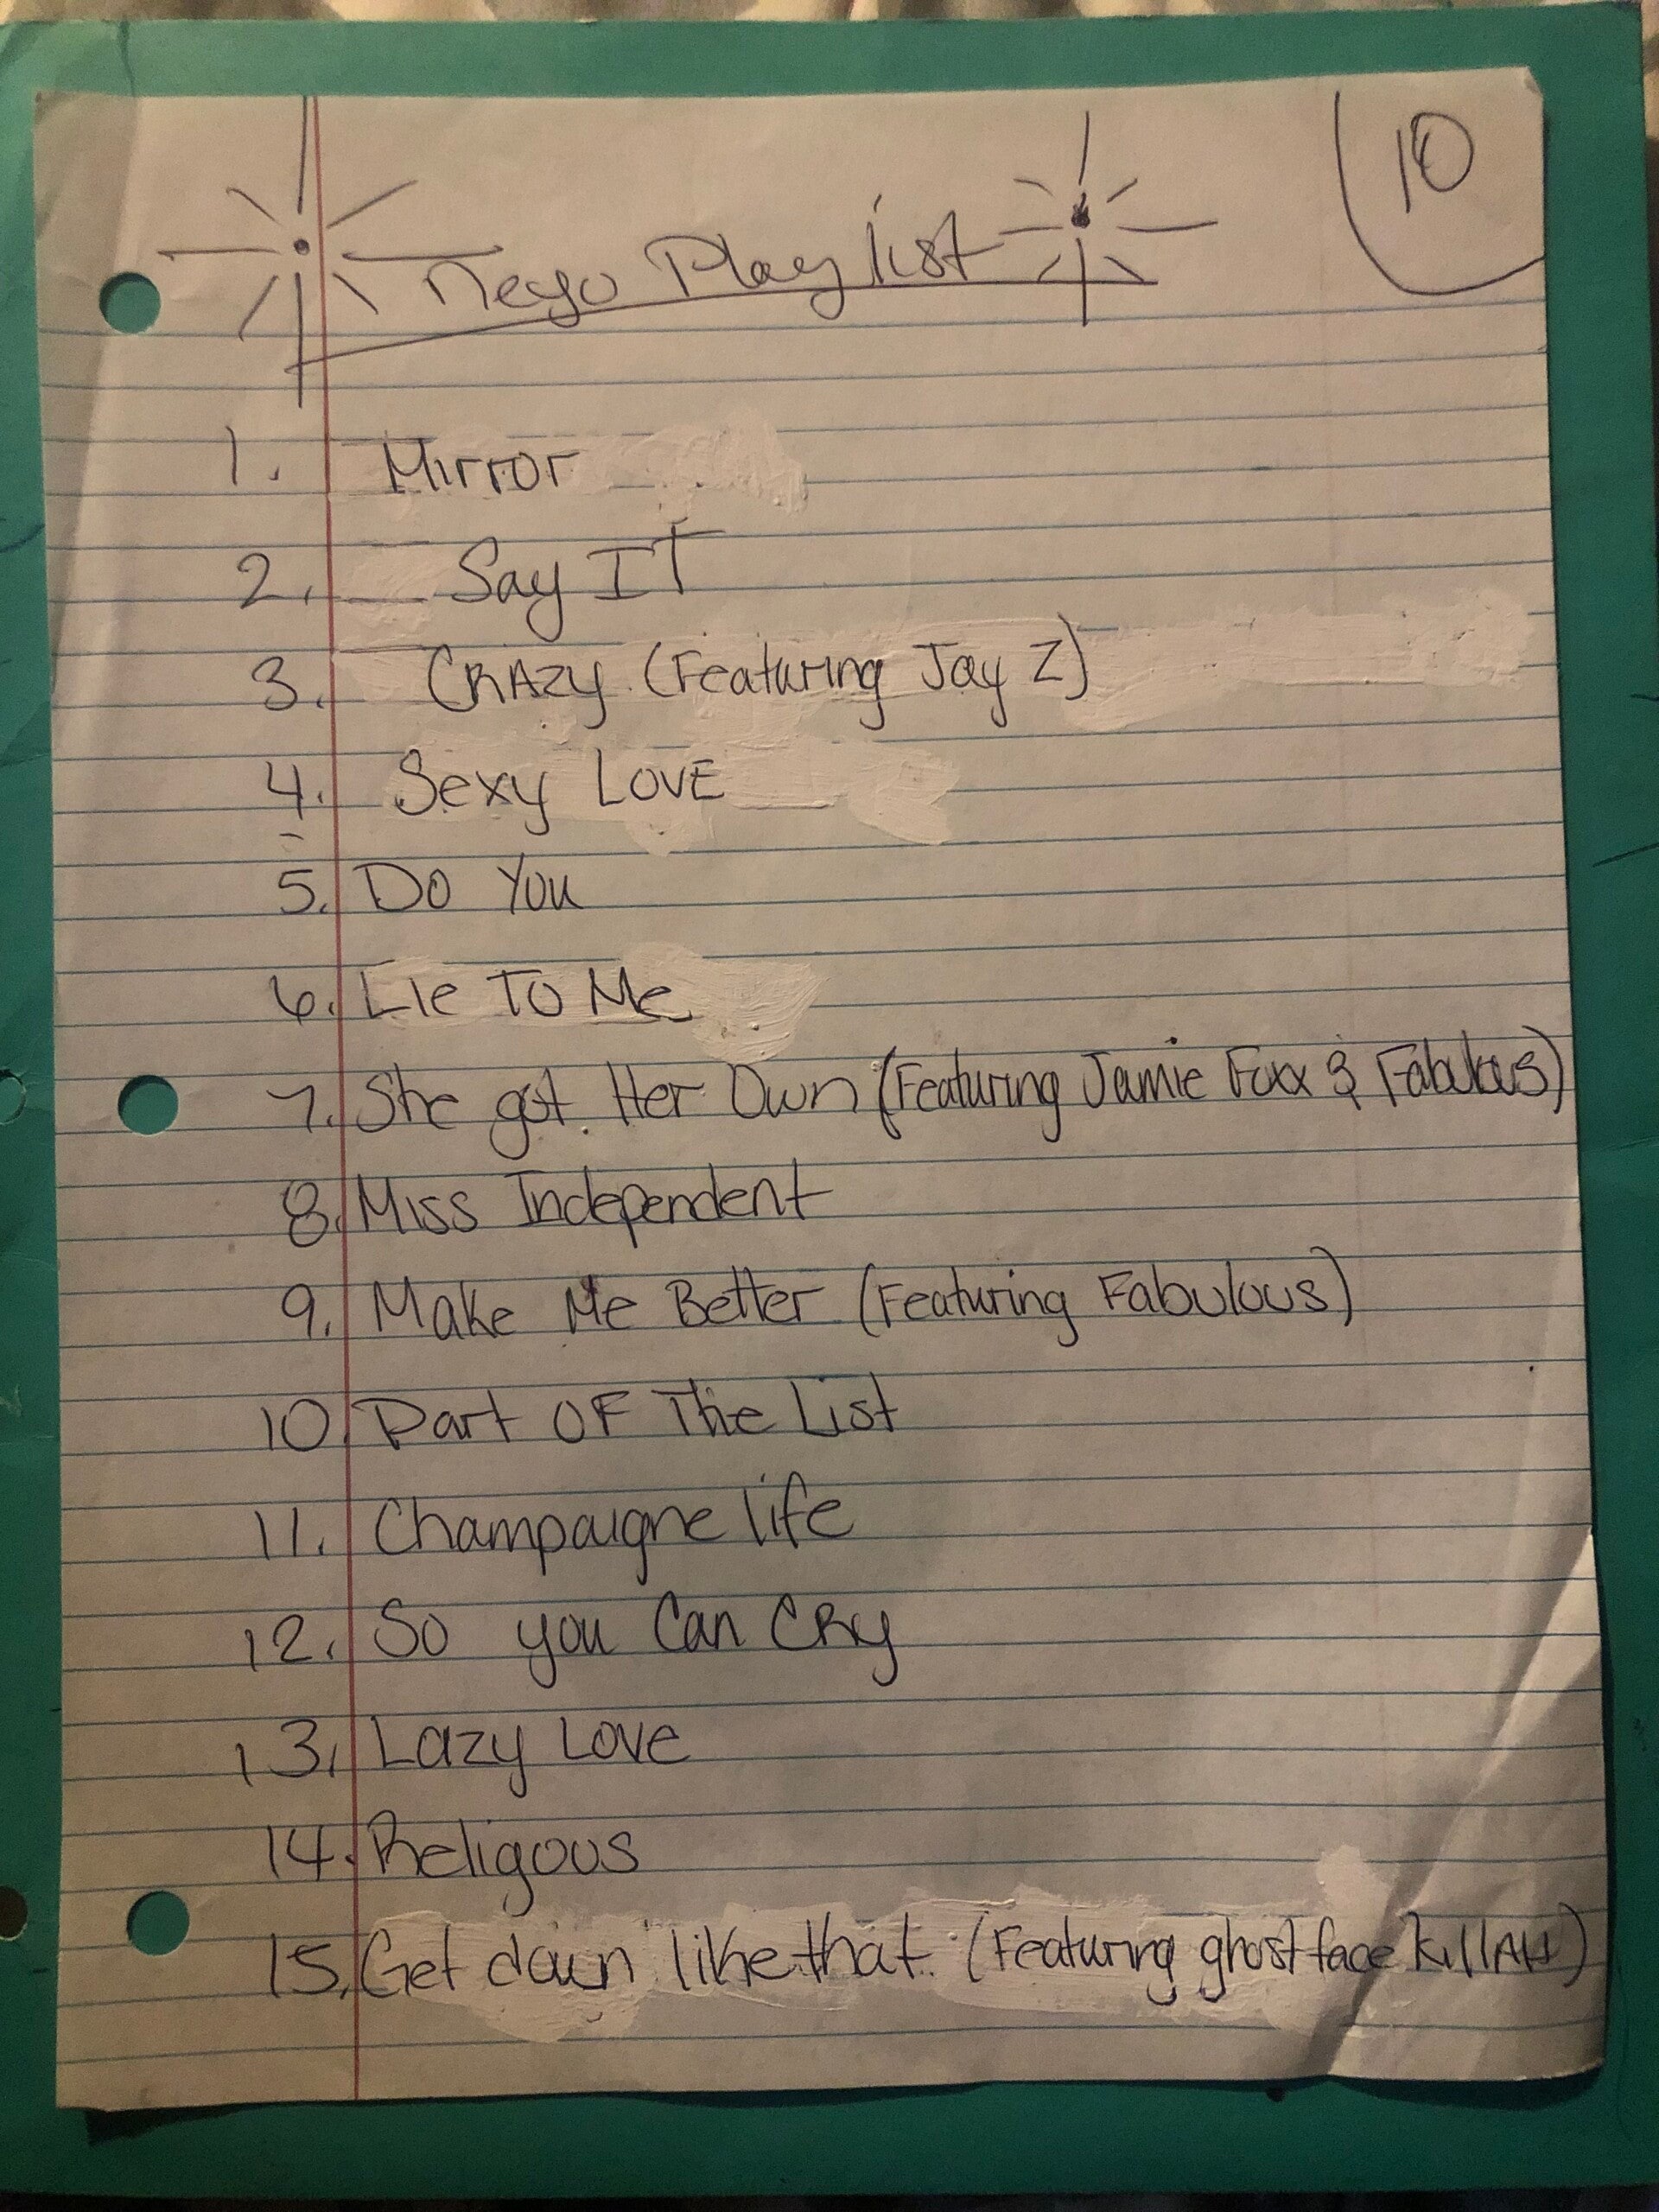 10
Neyo Playlist
1. Mirror
2. Say IT
3. CRAZY (Featuring Jay Z)
4. Sexy LOVE
5. Do You
6. Lie To Me
7. She got Her Own (Featuring Jamie Foxx & Fabulous)
8. Miss Independent
9. Make Me Better (Featuring Fabulous)
10. Part OF The List
11. Champaigne life
12. So you Can CRy
13. Lazy Love
14. Religous
15. Get down like that (Featuring ghostface KillAH)